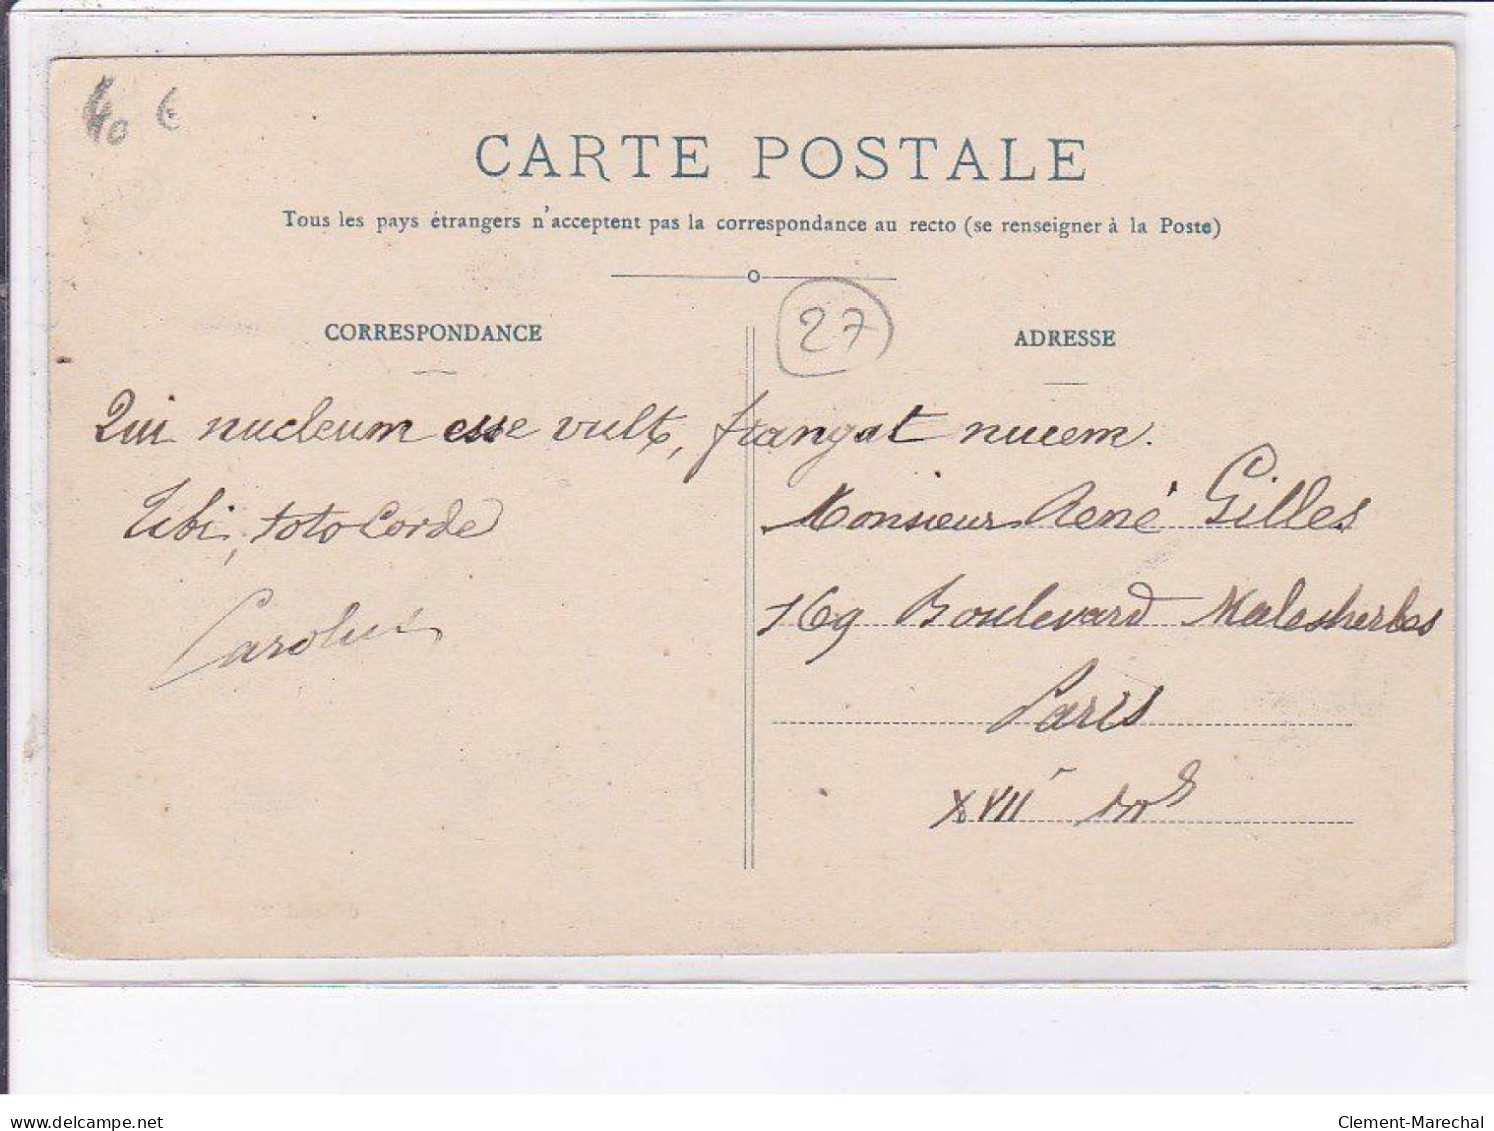 40 €
CARTE POSTALE
Tous les pays étrangers n'acceptent pas la correspondance au recto (se renseigner à la Poste)
27
CORRESPONDANCE
ADRESSE
Qui nucleum esse vult, frangat nucem.
Tibi, toto Corde
Carolus
Monsieur René Gilles
169 Boulevard Malesherbes
Paris
XVII
delcampe.net
Clement-Marechal